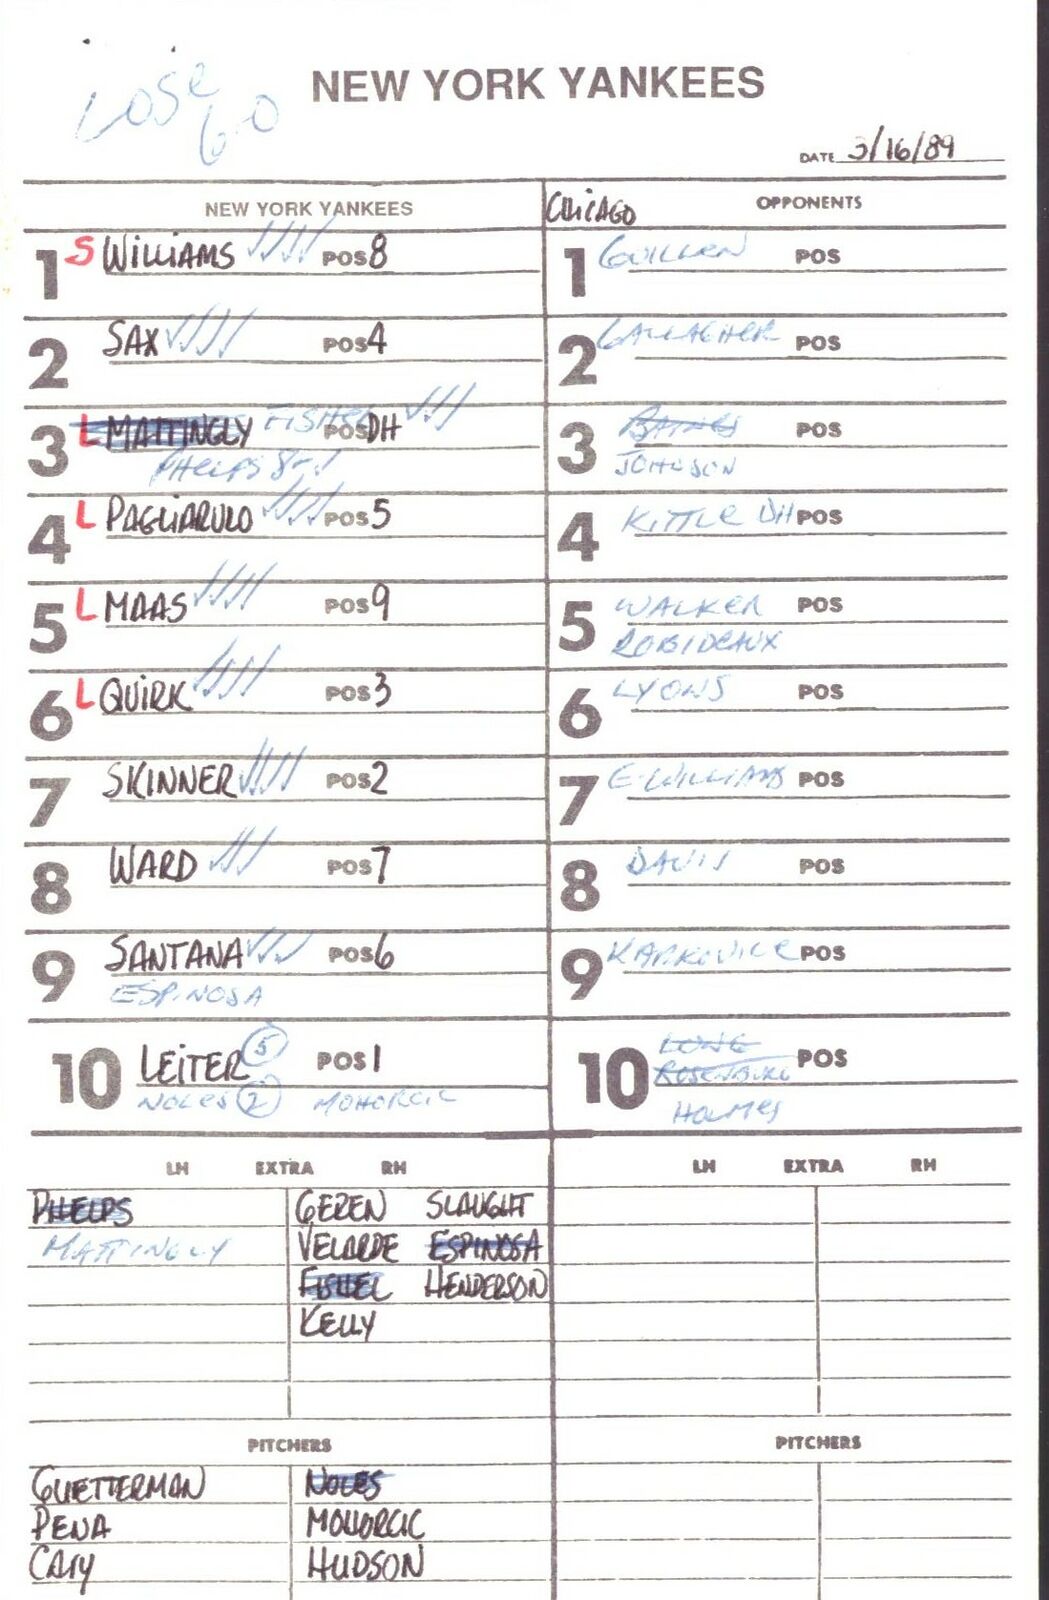 LOSE 6 0
NEW YORK YANKEES
DATE 3/16/89
NEW YORK YANKEES
CHICAGO OPPONENTS
1 S WILLIAMS POS 8
1 GUILLEN POS
2 SAX POS 4
2 GALLAGHER POS
3 L MATTINGLY FISHEL POS DH
PHELPS 8-1
3 BAINES POS
JOHNSON
4 L PAGLIARULO POS 5
4 KITTLE DH POS
5 L MAAS POS 9
5 WALKER POS
ROBIDEAUX
6 L QUIRK POS 3
6 LYONS POS
7 SKINNER POS 2
7 E. WILLIAMS POS
8 WARD POS 7
8 DAVIS POS
9 SANTANA POS 6
ESPINOSA
9 KARKOVICE POS
10 LEITER 5 POS 1
NOLES 2 MOHORCIC
10 LONG POS
ROSENBURG
HOLMES
LH EXTRA RH
LH EXTRA RH
PHELPS GEREN SLAUGHT
MATTINGLY VELARDE ESPINOSA
FISHEL HENDERSON
KELLY
PITCHERS
PITCHERS
GUETTERMAN NOLES
PENA MOHORCIC
CARY HUDSON